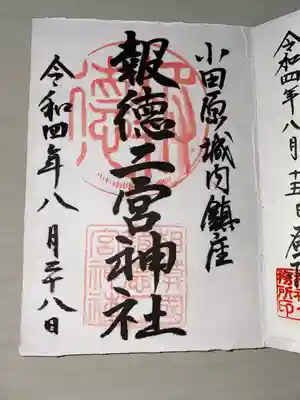 小田原城内鎮座
報徳二宮神社
令和四年八月二十八日
令和四年八月十五日
務所印